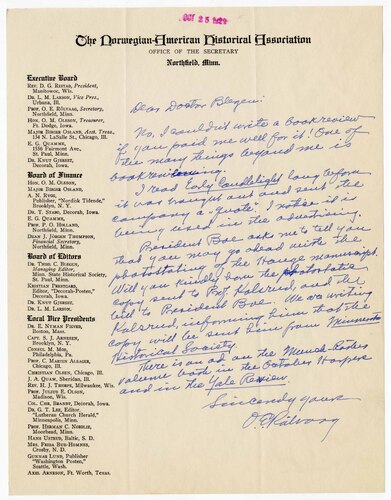 OCT 25 1929
The Norwegian-American Historical Association
OFFICE OF THE SECRETARY
Northfield, Minn.
Executive Board
REV. D. G. RISTAD, President,
Manitowoc, Wis.
DR. L. M. LARSON, Vice Pres.,
Urbana, Ill.
PROF. O. E. RÖLVAAG, Secretary,
Northfield, Minn.
HON. O. M. OLESON, Treasurer,
Ft. Dodge, Iowa
MAJOR BIRGER OSLAND, Asst. Treas.,
134 N. LaSalle St., Chicago, Ill.
E. G. QUAMME,
1536 Fairmont Ave.,
St. Paul, Minn.
DR. KNUT GJERSET,
Decorah, Iowa
Board of Finance
HON. O. M. OLESON,
MAJOR BIRGER OSLAND,
A. N. RYGG,
Publisher, "Nordisk Tidende,"
Brooklyn, N. Y.
DR. T. STABO, Decorah, Iowa.
E. G. QUAMME,
PROF. P. O. HOLLAND,
Northfield, Minn.
DEAN J. JÖRGEN THOMPSON,
Financial Secretary,
Northfield, Minn.
Board of Editors
DR. THEO. C. BLEGEN,
Managing Editor,
Minn. State Historical Society,
St. Paul, Minn.
KRISTIAN PRESTGARD,
Editor, "Decorah-Posten,"
Decorah, Iowa
DR. KNUT GJERSET
DR. L. M. LARSON,
Local Vice Presidents
DR. E. NYMAN FIGVED,
Boston, Mass.
CAPT. S. J. ARNESEN,
Brooklyn, N. Y.
CONSUL M. MOE,
Philadelphia, Pa.
PROF. C. MARTIN ALSAGER,
Chicago, Ill.
CHRISTIAN OLSEN, Chicago, Ill.
J. A. QUAM, Sheridan, Ill.
REV. H. J. THORPE, Milwaukee, Wis.
PROF. JULIUS E. OLSON,
Madison, Wis.
COL. CHR. BRANDT, Decorah, Iowa
DR. G. T. LEE, Editor,
"Lutheran Church Herald,"
Minneapolis, Minn.
PROF. HERMAN C. NORDLIE,
Moorhead, Minn.
HANS USTRUD, Baltic, S. D.
MRS. FRIDA BUE-HOMNES,
Crosby, N. D.
GUNNAR LUND, Publisher
"Washington Posten,"
Seattle, Wash.
AXEL ARNESON, Ft. Worth, Texas
Dear Doctor Blegen:
No, I couldn't write a bookreview
if you paid me well for it! One of
the many things beyond me is
bookreviewing.
I read Early Candlelight long before
it was bought out and sent the
company a "quote". I notice it is
being used in the advertising.
President Boe asks me to tell you
that you may go ahead with the
photostating of the Hauge manuscript.
Will you kindly have the photostatic
copy sent to Prof. Kolsrud, and the
bill to President Boe. We are writing
Kolsrud, informing him that the
copy will be sent him from Minnesota
Historical Society.
There is an ad on the
volume both in the October Harpers
and in the Yale Review.
Sincerely yours
O. E. Rölvaag